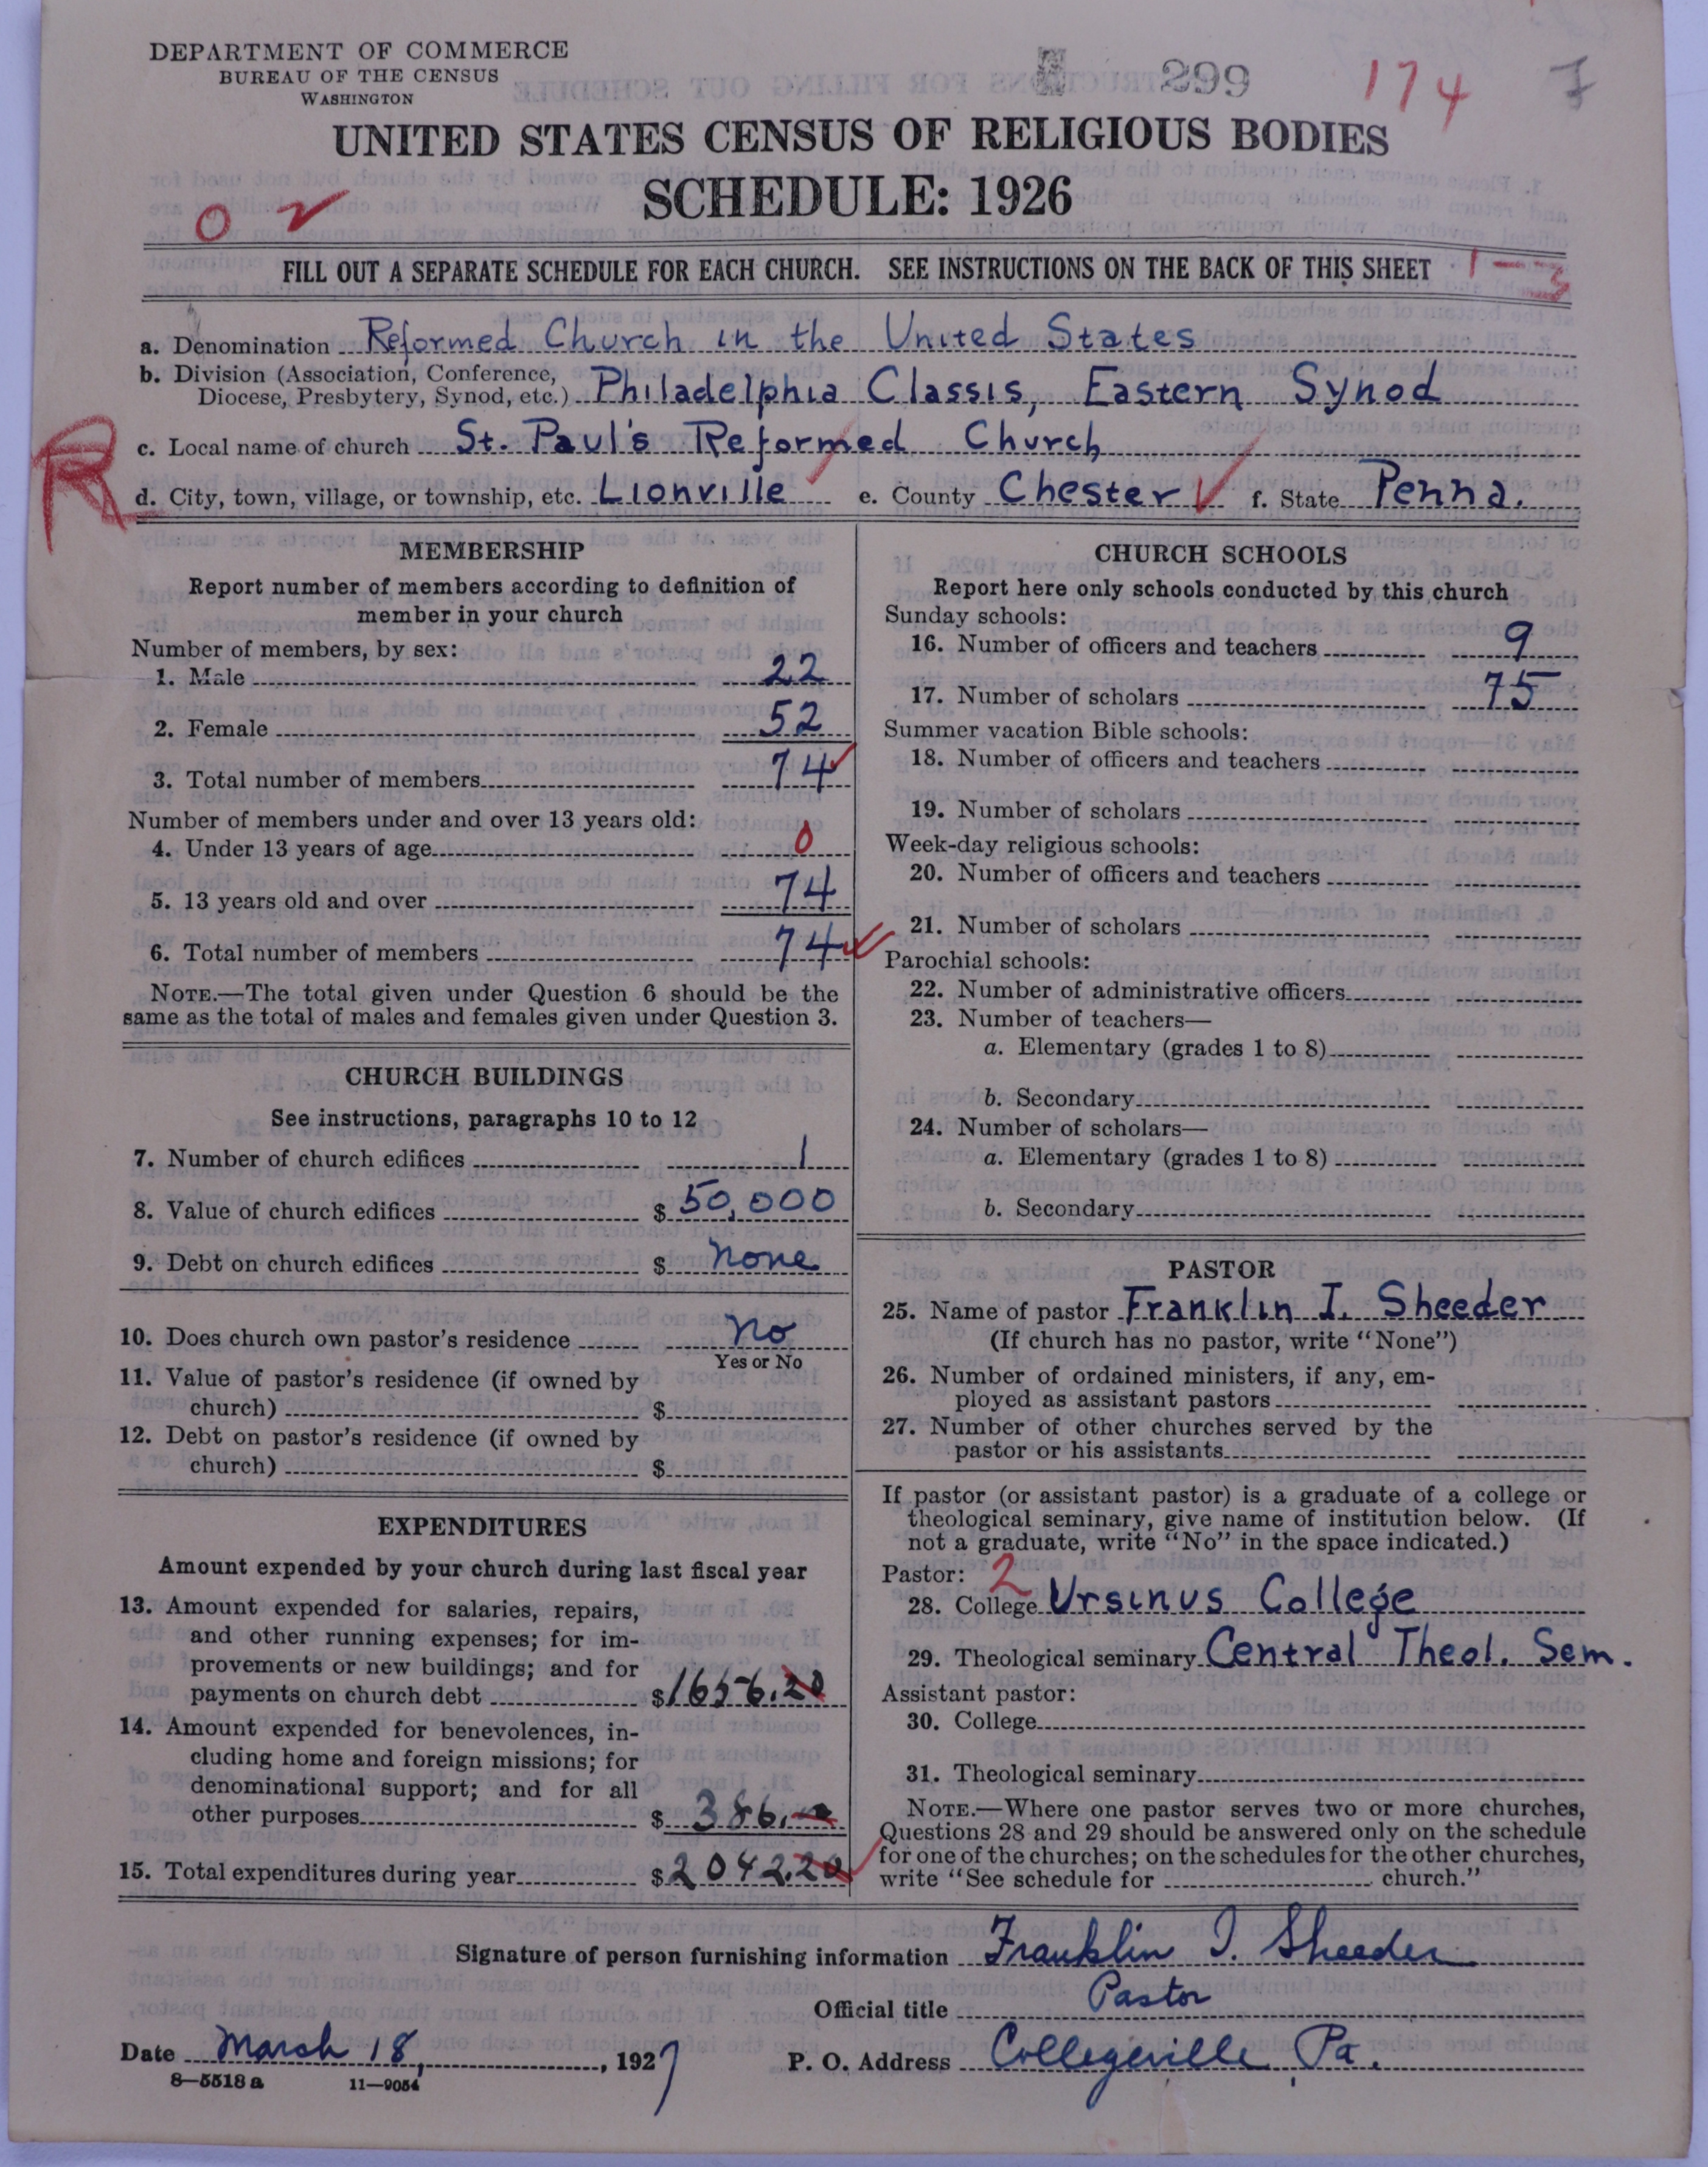 DEPARTMENT OF COMMERCE
BUREAU OF THE CENSUS
WASHINGTON
299
174
7
UNITED STATES CENSUS OF RELIGIOUS BODIES
SCHEDULE: 1926
0
FILL OUT A SEPARATE SCHEDULE FOR EACH CHURCH. SEE INSTRUCTIONS ON THE BACK OF THIS SHEET 1-3
a. Denomination Reformed Church in the United States
b. Division (Association, Conference,
Diocese, Presbytery, Synod, etc.) Philadelphia Classis, Eastern Synod
R
c. Local name of church St. Paul's Reformed Church
d. City, town, village, or township, etc. Lionville e. County Chester f. State Penna.
MEMBERSHIP
Report number of members according to definition of
member in your church
Number of members, by sex:
1. Male 22
2. Female 52
3. Total number of members 74
Number of members under and over 13 years old:
4. Under 13 years of age 0
5. 13 years old and over 74
6. Total number of members 74
NOTE.—The total given under Question 6 should be the
same as the total of males and females given under Question 3.
CHURCH BUILDINGS
See instructions, paragraphs 10 to 12
7. Number of church edifices 1
8. Value of church edifices $ 50,000
9. Debt on church edifices $ none
10. Does church own pastor's residence no
Yes or No
11. Value of pastor's residence (if owned by
church) $
12. Debt on pastor's residence (if owned by
church) $
EXPENDITURES
Amount expended by your church during last fiscal year
13. Amount expended for salaries, repairs,
and other running expenses; for im-
provements or new buildings; and for
payments on church debt $ 1656.20
14. Amount expended for benevolences, in-
cluding home and foreign missions; for
denominational support; and for all
other purposes $ 386.
15. Total expenditures during year $ 2042.20
CHURCH SCHOOLS
Report here only schools conducted by this church
Sunday schools:
16. Number of officers and teachers 9
17. Number of scholars 75
Summer vacation Bible schools:
18. Number of officers and teachers
19. Number of scholars
Week-day religious schools:
20. Number of officers and teachers
21. Number of scholars
Parochial schools:
22. Number of administrative officers
23. Number of teachers—
a. Elementary (grades 1 to 8)
b. Secondary
24. Number of scholars—
a. Elementary (grades 1 to 8)
b. Secondary
PASTOR
25. Name of pastor Franklin I. Sheeder
(If church has no pastor, write "None")
26. Number of ordained ministers, if any, em-
ployed as assistant pastors
27. Number of other churches served by the
pastor or his assistants
If pastor (or assistant pastor) is a graduate of a college or
theological seminary, give name of institution below. (If
not a graduate, write "No" in the space indicated.)
Pastor: 2
28. College Ursinus College
29. Theological seminary Central Theol. Sem.
Assistant pastor:
30. College
31. Theological seminary
NOTE.—Where one pastor serves two or more churches,
Questions 28 and 29 should be answered only on the schedule
for one of the churches; on the schedules for the other churches,
write "See schedule for church."
Signature of person furnishing information Franklin I. Sheeder
Official title Pastor
Date March 18, , 1927 P. O. Address Collegeville Pa.
8—5518 a 11—9054